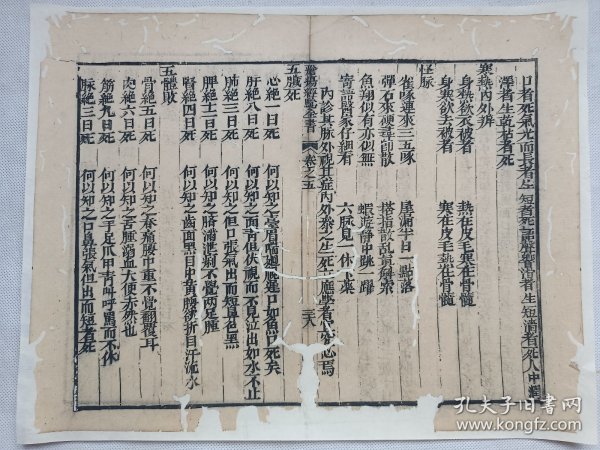 浮者生乾枯者死
寒熱內外辨
身熱欲衣被者 熱在皮毛寒在骨髓
身寒欲去被者 寒在皮毛熱在骨髓
怪脉
雀啄連來三五啄 屋漏半日一點落
彈石來硬尋即散 搭指散亂真解索
魚翔似有亦似無 蝦遊靜中跳一躍
寄語醫家仔細看 六脉見一休
內診其脉外視其症內外參之生死立應學者
卷之五
五臟死
心絶一日死 何以知之
肝絶八日死 何以知之面青但伏視而不見泣出如水不止
肺絶三日死 何以知之但口張氣出而短鼻色黑
脾絶十二日死 何以知之臍滿泄痢不覺兩足腫
腎絶四日死 何以知之齒面黑目中黃腰欲折自汗流水
五體敗
骨絶五日死 何以知之脊痛腰中重不覺翻覆耳
肉絶六日死 何以知之舌腫溺血大便赤然也
筋絶九日死 何以知之手足爪甲青呼呼罵而不休
脉絶三日死 何以知之口鼻張氣但出而短者死
孔夫子旧书网
www.kongfz.com